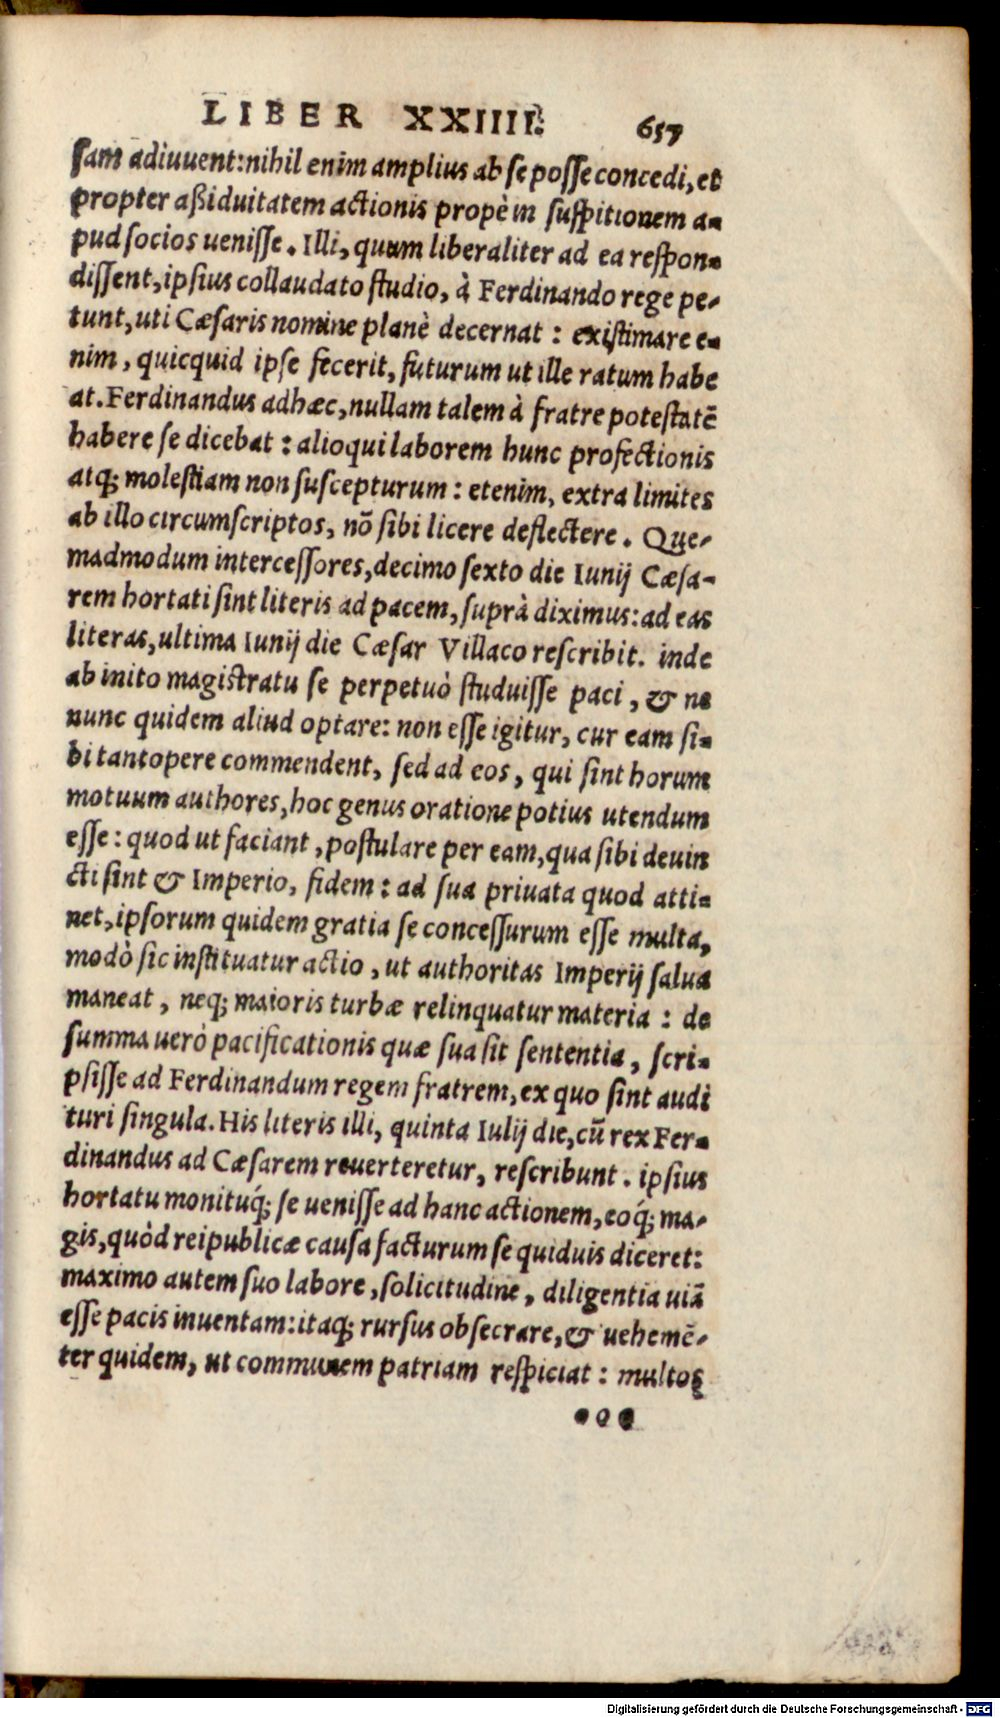 LIBER XXIIII. 657
sam adiuuent: nihil enim amplius ab se posse concedi, et
propter aßiduitatem actionis propè in suspitionem a-
pud socios uenisse. Illi, quum liberaliter ad ea respon-
dissent, ipsius collaudato studio, à Ferdinando rege pe-
tunt, uti Cæsaris nomine planè decernat: existimare e-
nim, quicquid ipse fecerit, futurum ut ille ratum habe
at. Ferdinandus ad hæc, nullam talem à fratre potestatē
habere se dicebat: alioqui laborem hunc profectionis
atq; molestiam non suscepturum: etenim, extra limites
ab illo circumscriptos, nō sibi licere deflectere. Que-
madmodum intercessores, decimo sexto die Iunij Cæsa-
rem hortati sint literis ad pacem, suprà diximus: ad eas
literas, ultima Iunij die Cæsar Villaco rescribit. inde
ab inito magistratu se perpetuò studuisse paci, & ne
nunc quidem aliud optare: non esse igitur, cur eam si-
bi tantopere commendent, sed ad eos, qui sint horum
motuum authores, hoc genus oratione potius utendum
esse: quod ut faciant, postulare per eam, qua sibi deuin
cti sint & Imperio, fidem: ad sua priuata quod atti-
net, ipsorum quidem gratia se concessurum esse multa,
modò sic instituatur actio, ut authoritas Imperij salua
maneat, neq; maioris turbæ relinquatur materia: de
summa uerò pacificationis quæ sua sit sententia, scri-
psisse ad Ferdinandum regem fratrem, ex quo sint audi
turi singula. His literis illi, quinta Iulij die, cū rex Fer-
dinandus ad Cæsarem reuerteretur, rescribunt. ipsius
hortatu monituq́; se uenisse ad hanc actionem, eoq́; ma-
gis, quòd reipublicæ causa facturum se quiduis diceret:
maximo autem suo labore, solicitudine, diligentia uiā
esse pacis inuentam: itaq; rursus obsecrare, & uehemē-
ter quidem, ut communem patriam respiciat: multos
Digitalisierung gefördert durch die Deutsche Forschungsgemeinschaft - DFG